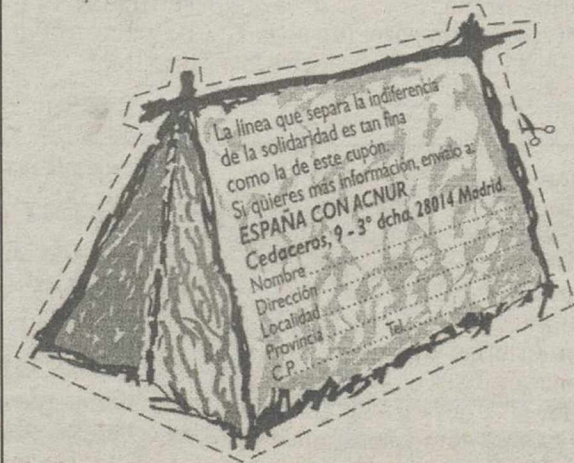 La línea que separa la indiferencia
de la solidaridad es tan fina
como la de este cupón.
Si quieres más información, envíalo a:
ESPAÑA CON ACNUR
Cedaceros, 9 - 3º dcha. 28014 Madrid.
Nombre
Dirección
Localidad
Provincia
C.P. Tel.